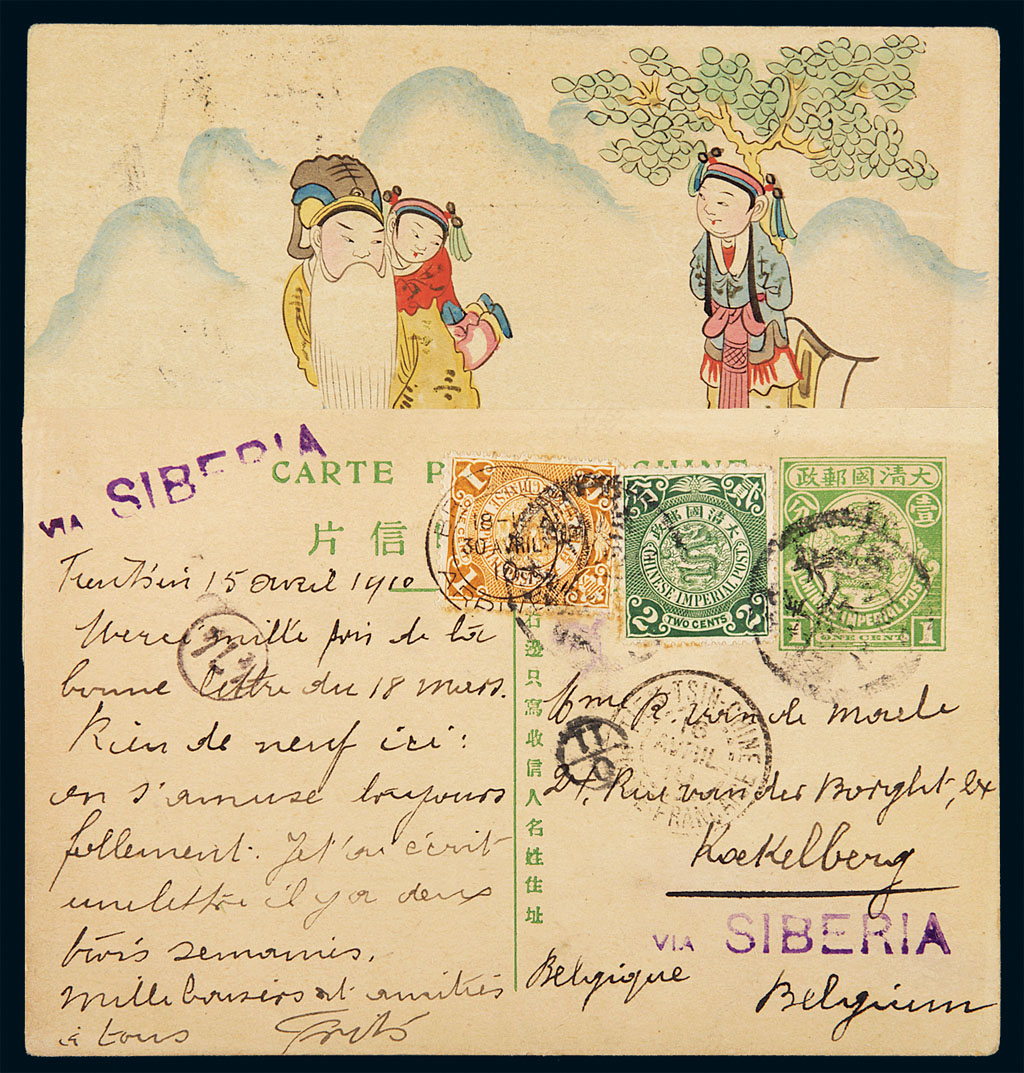 VIA SIBERIA
CARTE P CHINE
片 信
大清國郵政
壹
分
CHINESE IMPERIAL POST
1 ONE CENT 1
1
大清國郵政
貳
CHINESE IMPERIAL POST
2 TWO CENTS 2
30 AVRIL
右邊只寫收信人名姓住址
Tientsin 15 avril 1910
Merci mille fois de ta
bonne lettre du 18 mars.
Rien de neuf ici:
on s'amuse toujours
follement. Je t'ai écrit
une lettre il y a deux
trois semaines.
Mille baisers et amitiés
à tous
TSIN-CHINE
16
AVRIL
Mme R. van de Maele
21, Rue van der Borght, 2x
Koekelberg
VIA SIBERIA
Belgique
Belgium